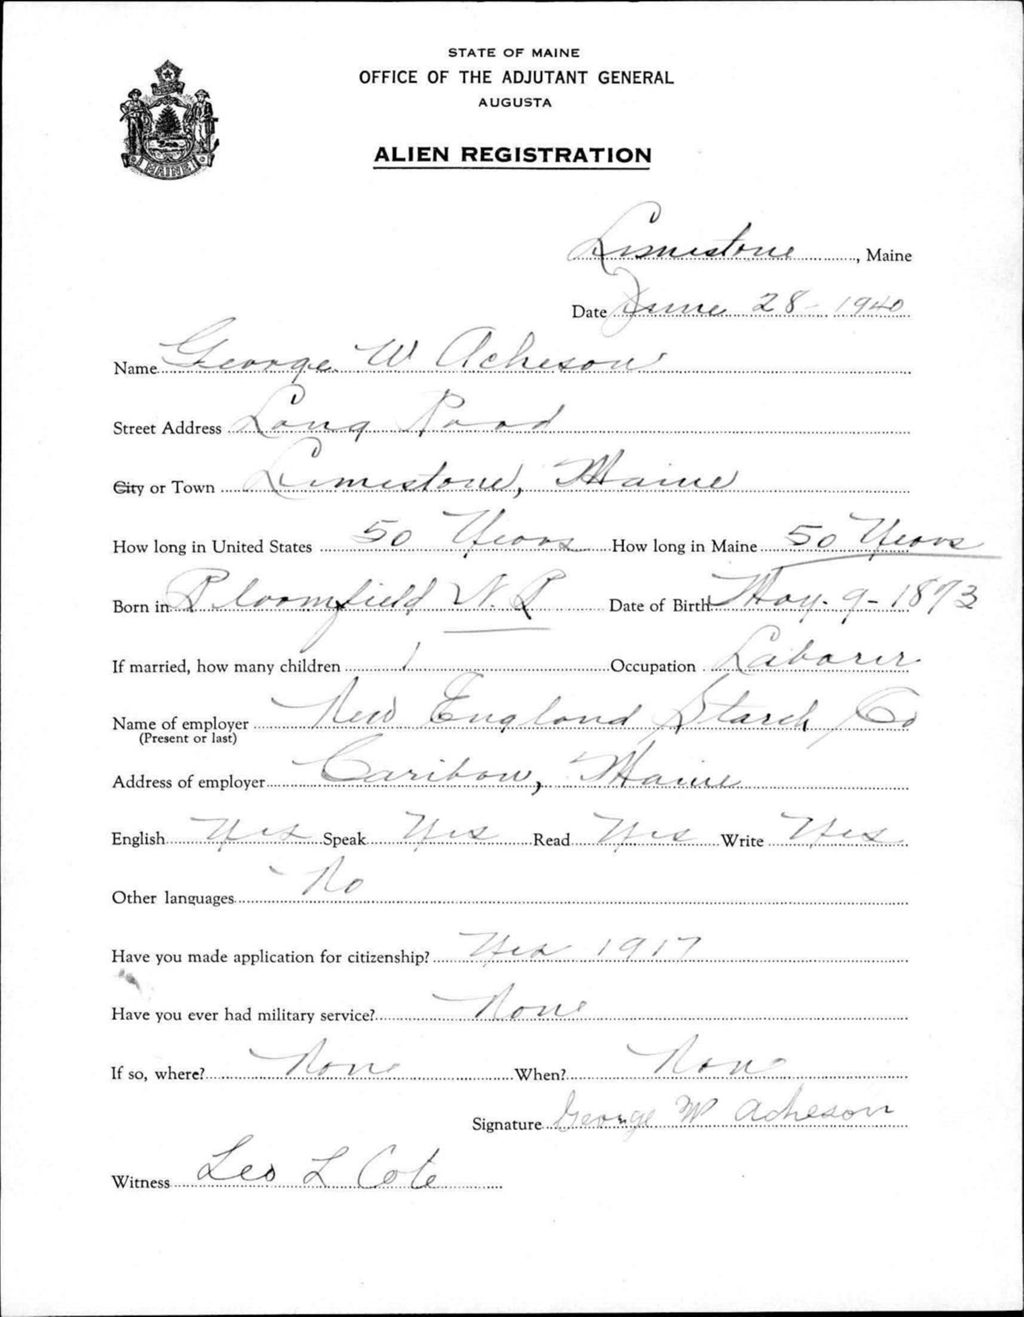 STATE OF MAINE
OFFICE OF THE ADJUTANT GENERAL
AUGUSTA
ALIEN REGISTRATION
MAINE
Limestone, Maine
Date June 28 - 1940
Name George W Acheson
Street Address Long Road
City or Town Limestone, Maine
How long in United States 50 Years How long in Maine 50 Years
Born in Bloomfield N. B Date of Birth May - 9 - 1873
If married, how many children 1 Occupation Laborer
Name of employer New England Starch Co
(Present or last)
Address of employer Caribou, Maine
English Yes Speak Yes Read Yes Write Yes
Other languages No
Have you made application for citizenship? Yes 1917
Have you ever had military service? None
If so, where? None When? None
Signature George W Acheson
Witness Leo L Cote